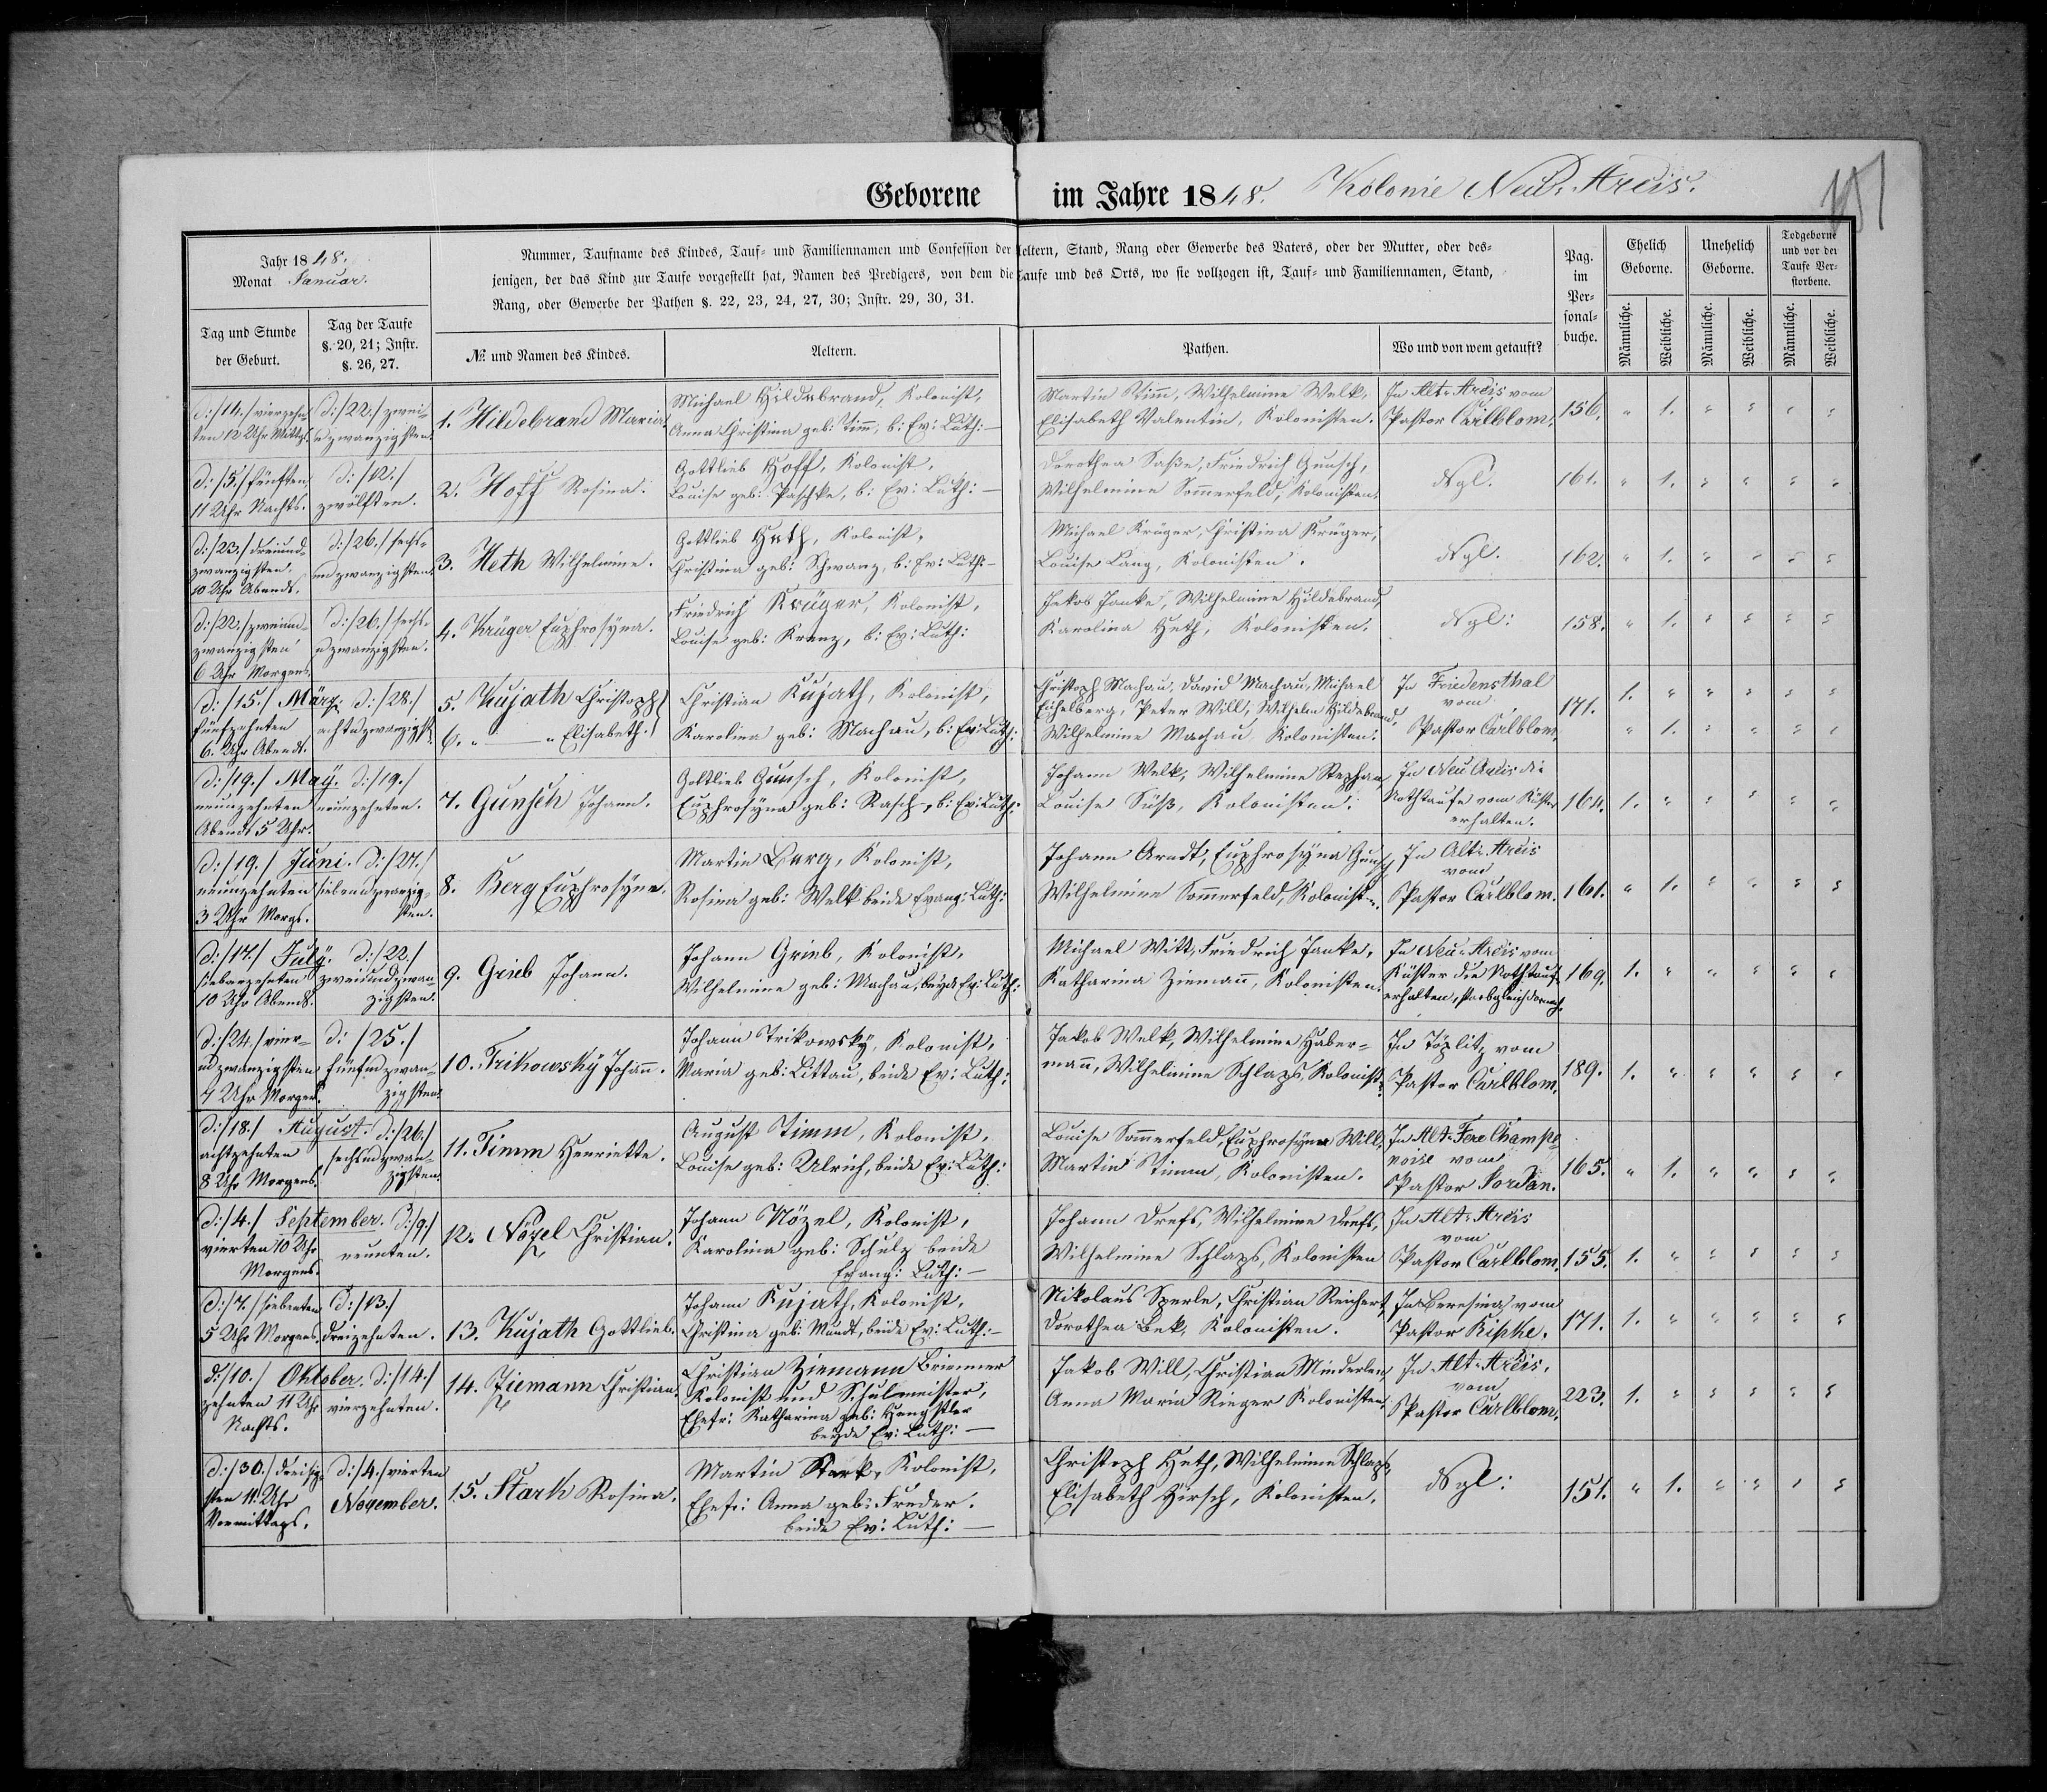 Geborene im Jahre 1848. Kolonie Neu-Arcis.
151
Jahr 1848.
Monat Januar.
Nummer, Taufname des Kindes, Tauf- und Familiennamen und Confession der Aeltern, Stand, Rang oder Gewerbe des Vaters, oder der Mutter, oder des-
jenigen, der das Kind zur Taufe vorgestellt hat, Namen des Predigers, von dem die Taufe und des Orts, wo sie vollzogen ist, Tauf- und Familiennamen, Stand,
Rang, oder Gewerbe der Pathen §. 22, 23, 24, 27, 30; Instr. 29, 30, 31.
Pag.
im
Per-
sonal-
buche.
Ehelich
Geborne.
Unehelich
Geborne.
Todgeborne
und vor der
Taufe Ver-
storbene.
Tag und Stunde
der Geburt.
Tag der Taufe
§. 20, 21; Instr.
§. 26, 27.
№ und Namen des Kindes.
Aeltern.
Pathen.
Wo und von wem getauft?
Männliche.
Weibliche.
Männliche.
Weibliche.
Männliche.
Weibliche.
d: /14./ vierzehn-
ten 12 Uhr Mittgs.
d: /22./ zwei-
u zwanzigsten.
1. Hildebrand Maria.
Michael Hildebrand, Kolonist,
Anna Christina geb: Timm, b: Ev: Luth: —
Martin Timm, Wilhelmine Welk,
Elisabeth Valentin, Kolonisten.
In Alt-Arcis vom
Pastor Carlblom.
156. " 1. " " " "
d: /5./ fünften
11 Uhr Nachts.
d: /12./
zwölften.
2. Hoff Rosina.
Gottlieb Hoff, Kolonist,
Louise geb: Paschke, b: Ev: Luth: —
Dorothea Saße, Friedrich Gunsch,
Wilhelmine Sommerfeld, Kolonisten.
dgl.
161. " 1. " " " "
d: /23./ dreiund-
zwanzigsten.
10 Uhr Abends.
d: /26./ sechs-
un zwanzigsten.
3. Heth Wilhelmine.
Gottlieb Heth, Kolonist,
Christina geb: Schwanz, b: Ev: Luth: —
Michael Krüger, Christina Krüger,
Louise Lang, Kolonisten.
dgl.
162. " 1. " " " "
d: /22./ zweiun-
zwanzigsten
6 Uhr Morgens.
d: /26./ sechs-
u zwanzigsten.
4. Krüger Euphrosÿna.
Friedrich Krüger, Kolonist,
Louise geb: Krenz, b: Ev: Luth:
Jakob Janke, Wilhelmine Hildebrand,
Karolina Heth, Kolonisten.
dgl:
158. " 1. " " " "
d: /15./ März. d: /28./
fünfzehnten
6. Uhr Abends.
acht u zwanzigst.
5. Kujath Christoph
6. " — " Elisabeth.
Christian Kujath, Kolonist,
Karolina geb: Machau, b: Ev: Luth:
Christoph Machau, David Machau, Michael
Eichelberg, Peter Will, Wilhelm Hildebrand,
Wilhelmine Machau Kolonisten.
In Friedensthal
vom
Pastor Carlblom.
171. 1. " " " " "
" 1. " " " "
d: /19./ Maÿ. d: /19./
neunzehnten
Abends 5 Uhr.
neunzehnten.
7. Gunsch Johann.
Gottlieb Gunsch, Kolonist,
Euphrosÿna geb: Rasch, b: Ev: Luth:
Johann Welk, Wilhelmine Stephan,
Louise Süß, Kolonisten.
In Neu Arcis die
Nothtaufe vom Küster
erhalten.
164. 1. " " " " "
d: /19./ Juni. d: /27./
neunzehnten
3 Uhr Morgs.
siebenuzwanzig-
sten.
8. Berg Euphrosÿne.
Martin Berg, Kolonist,
Rosina geb: Welk beide Evang: Luth:
Johann Arndt, Euphrosÿna Gunsch,
Wilhelmine Sommerfeld, Kolonist-n.
In Alt-Arcis
vom
Pastor Carlblom.
161. " 1. " " " "
d: /17./ Julÿ. d: /22./
siebenzehnten
10 Uhr Abends.
zweiundzwan-
zigsten.
9. Grieb Johann.
Johann Grieb, Kolonist,
Wilhelmine geb: Machau, beyde Ev: Luth:
Michael Witt, Friedrich Janke,
Katharina Ziemann, Kolonisten.
In Neu-Arcis vom
Küster die Nothtaufe
erhalten, starb gleich darnach.
169. 1. " " " " "
d: /24./ vier-
u zwanzigsten
4 Uhr Morgens.
d: /25./
fünfu zwan-
zigsten.
10. Trikowskÿ Johann.
Johann Trikowskÿ, Kolonist,
Maria geb: Littau, beide Ev: Luth:
Jakob Welk, Wilhelmine Haber-
mann, Wilhelmine Schlaps, Kolonist-
In Töplitz vom
Pastor Carlblom.
189. 1. " " " " "
d: /18./ August. d: /26./
achtzehnten
8 Uhr Morgens.
sechsu zwan-
zigsten.
11. Timm Henriette.
August Timm, Kolonist,
Louise geb: Ulrich, beide Ev: Luth:
Louise Sommerfeld, Euphrosÿna Will,
Martin Timm, Kolonisten.
In Alt-Fere Champe
noise vom
Pastor Jordan.
165. " 1. " " " "
d: /4./ September. d: /9./
vierten 10 Uhr
Morgens.
neunten.
12. Nözel Christian.
Johann Nözel, Kolonist,
Karolina geb: Schulz beide
Evang: Luth: —
Johann Drefs, Wilhelmine Drefs,
Wilhelmine Schlaps, Kolonisten
In Alt-Arcis
vom
Pastor Carlblom.
155. 1. " " " " "
d: /7./ siebenten
5 Uhr Morgens.
d: /13./
dreizehnten.
13. Kujath Gottlieb.
Johann Kujath, Kolonist,
Christina geb: Mundt, beide Ev: Luth: —
Nikolaus Sperle, Christian Reichert,
Dorothea Bek, Kolonisten.
In Beresina vom
Pastor Kipke.
171. 1. " " " " "
d: /10./ Oktober. d: /14./
zehnten 11 Uhr
Nachts.
vierzehnten.
14. Ziemann Christian.
Christian Ziemann Brienner
Kolonist und Schulmeister,
Ehefr: Katharina geb: Hengstler
beyde Ev: Luth: —
Jakob Will, Christian Minderlen,
Anna Maria Rieger Kolonisten.
In Alt-Arcis.
vom
Pastor Carlblom.
223. 1. " " " " "
d: /30./ dreisig-
sten 11. Uhr
Vormittags.
d: /4./ vierten
November.
15. Stark Rosina.
Martin Stark, Kolonist,
Ehefr: Anna geb: Freder.
beide Ev: Luth: —
Christoph Heth, Wilhelmine Schlaps,
Elisabeth Hirsch, Kolonisten.
dgl:
151. " 1. " " " "